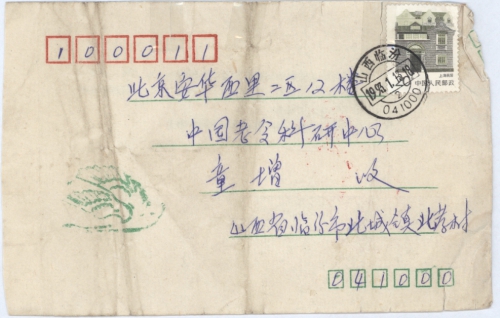 100011
北京安华西里二区12楼
中国老令科研中心
童增 收
山西省临汾市北城镇北孝村
041000
山西临汾
041000
中国人民邮政